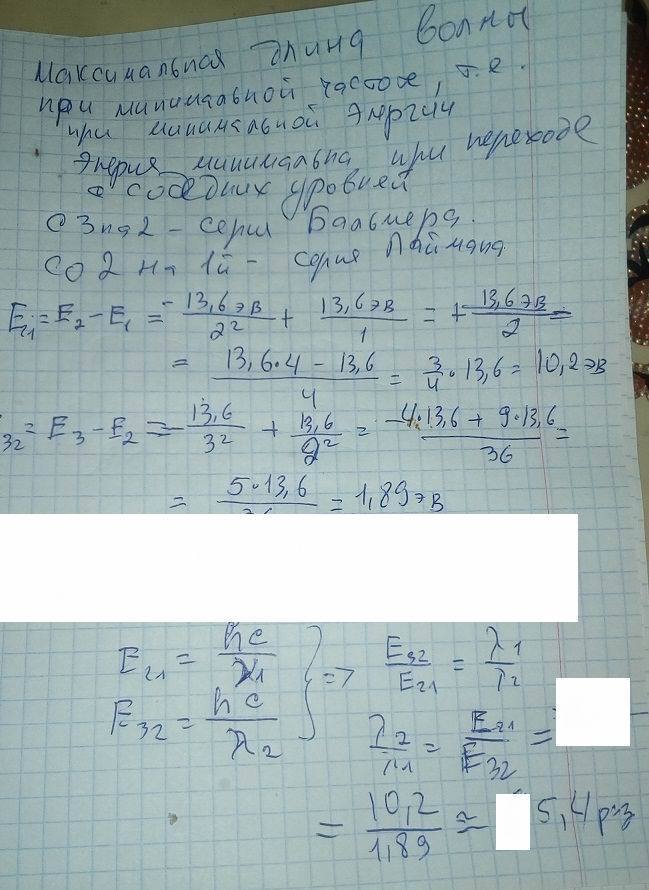 Максимальная длина волны
при минимальной частоте, т.е.
при минимальной Энергии
Энерия минимальна при переходе
с соседних уровней
С 3 на 2 - серия Бальмера.
СО 2 на 1й - серия Лаймана.
E₂₁ = E₂ - E₁ = -13,6 эв/2² + 13,6 эв/1 = + 13,6 эв/2 =
= (13,6·4 - 13,6)/4 = 3/4 · 13,6 = 10,2 эв
₃₂ = E₃ - E₂ = -13,6/3² + 13,6/2² = (-4·13,6 + 9·13,6)/36 =
= 5·13,6/36 = 1,89 эв
E₂₁ = hc/λ₁ } => E₃₂/E₂₁ = λ₁/λ₂
E₃₂ = hc/λ₂
λ₂/λ₁ = E₂₁/E₃₂ =
= 10,2/1,89 ≈ 5,4 раз